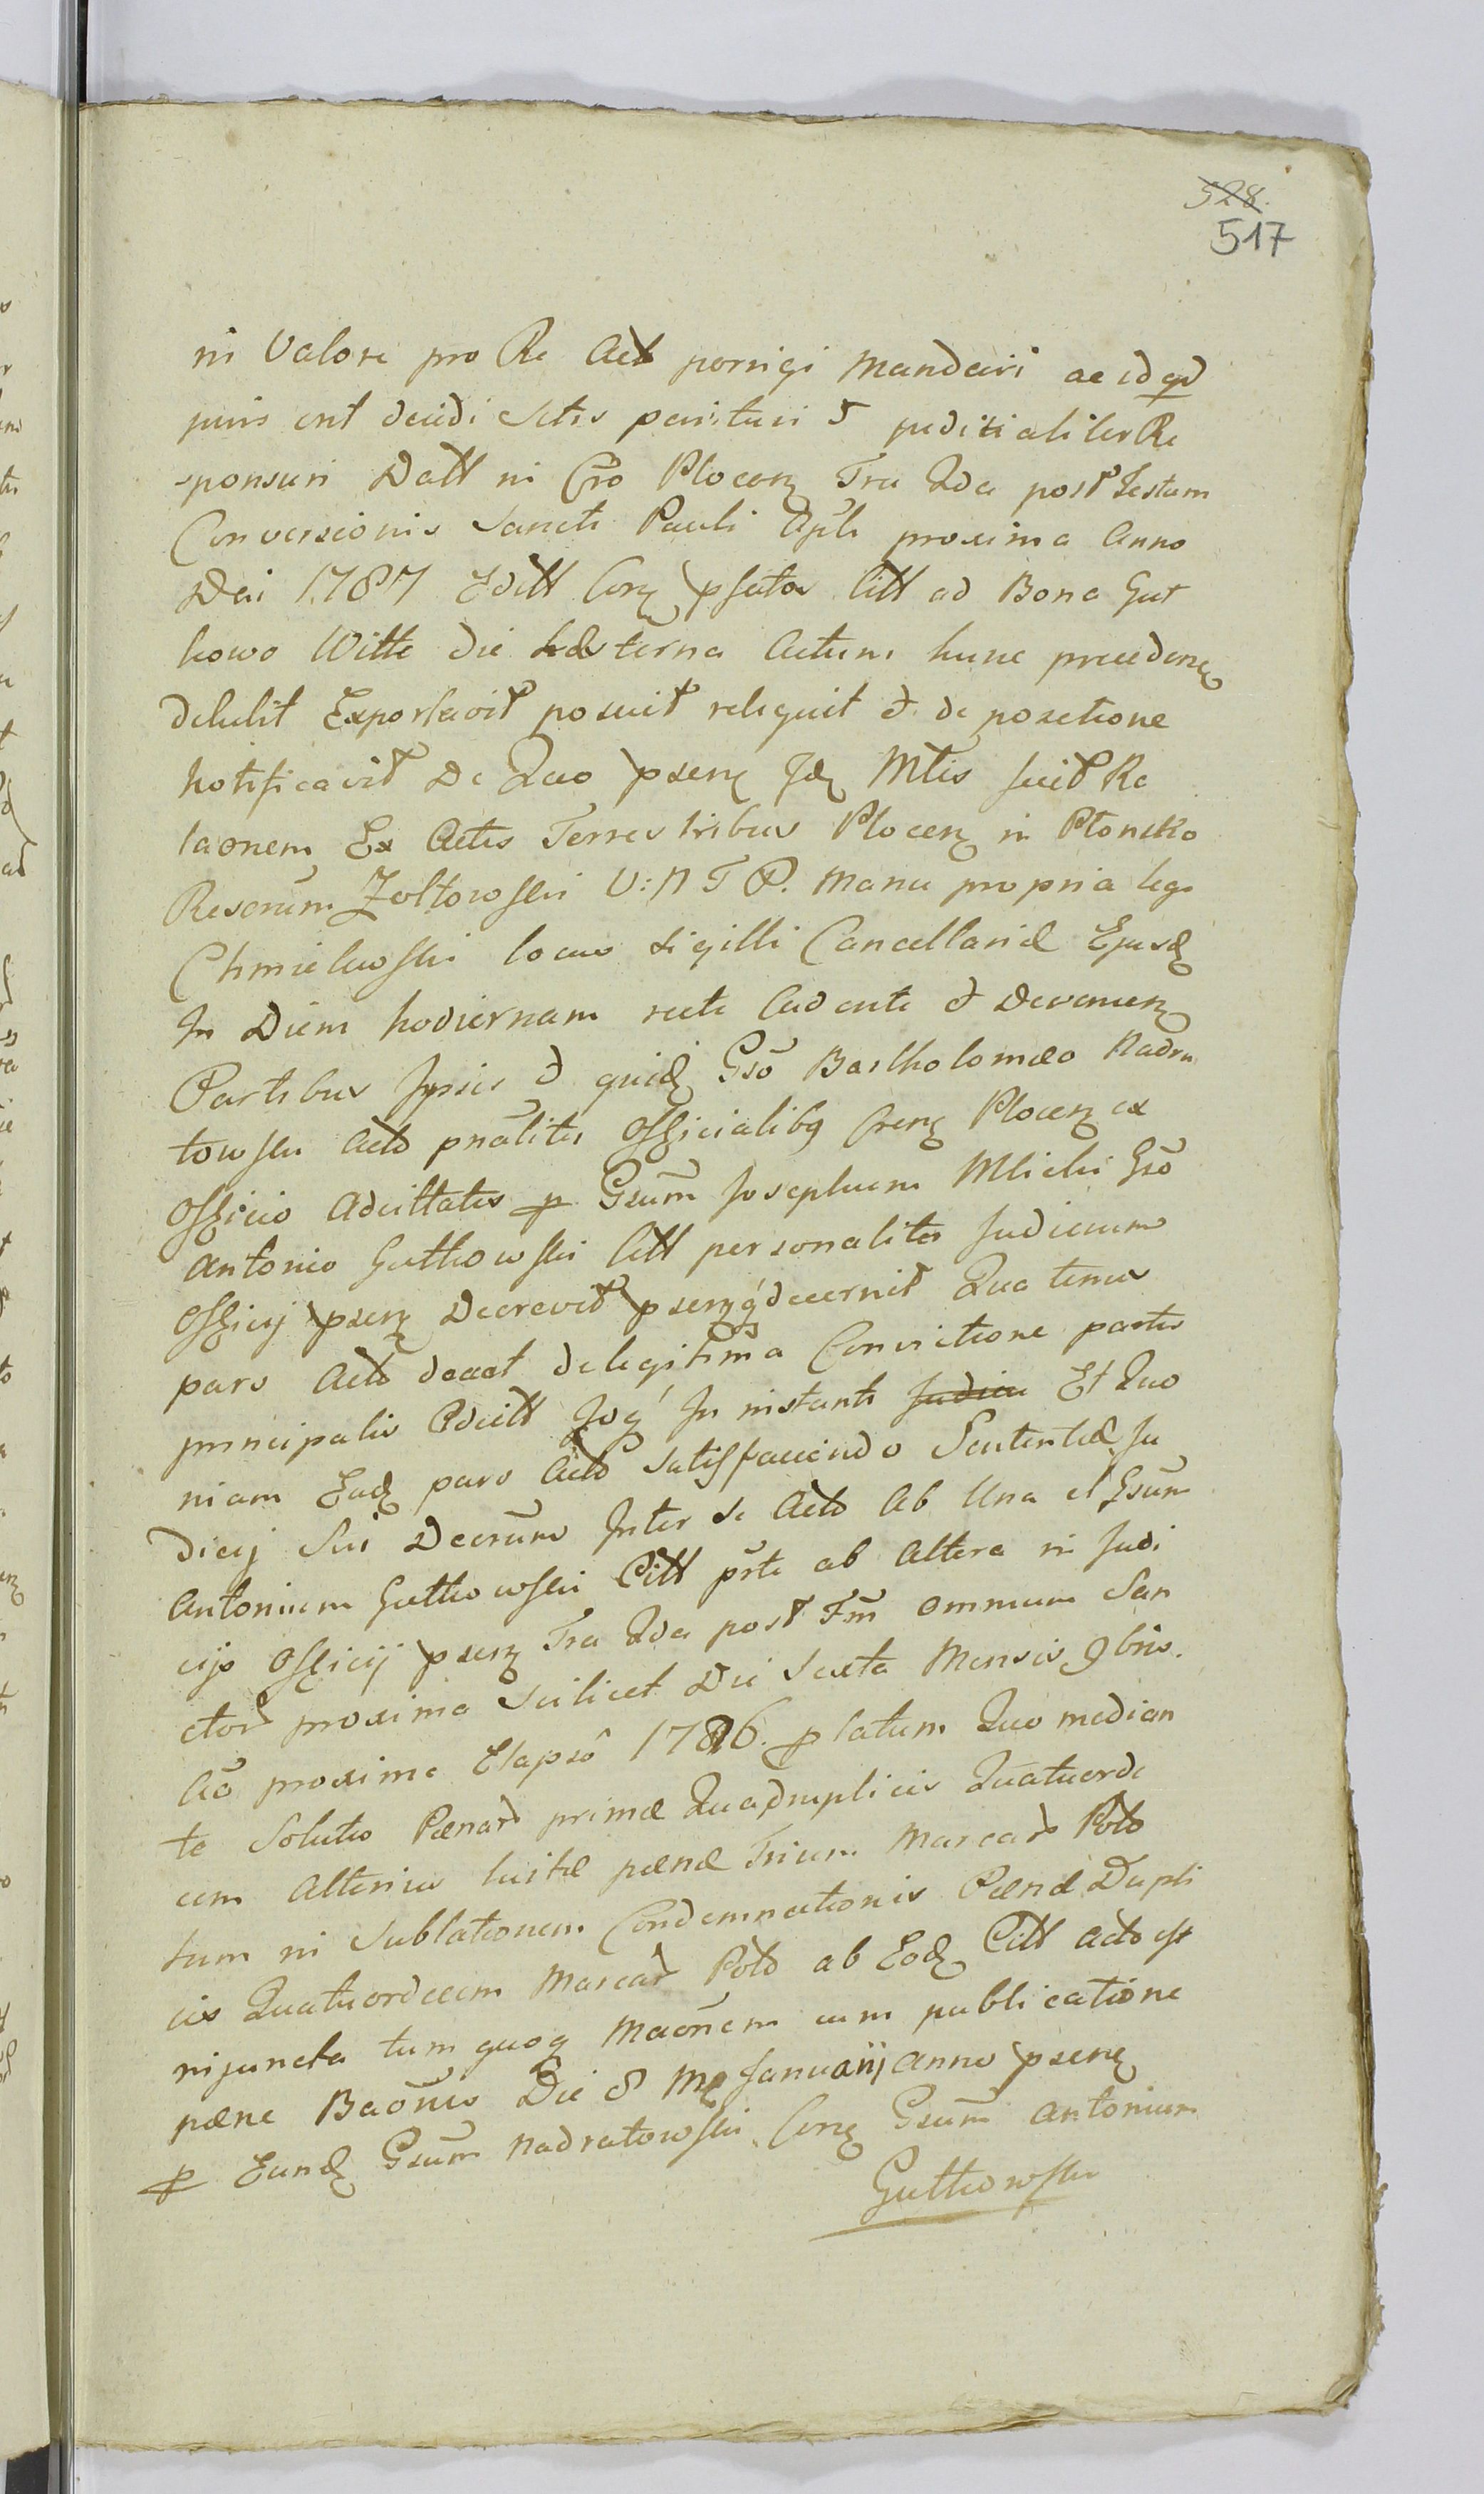 528.
517
in Valore pro Re Act porrigi Mandari ac id qd
juris erit decidi Sctis parituri et judicialiter Re
sponsuri Datt in Cro Plocen Fria 2da post Festum
Conversionis Sancti Pauli Apli proxima Anno
Dni 1787 Editt Coram psata Citt ad Bona Gut
kowo Witte die hesterna Actum hunc preceden
detulit Exportavit posuit reliquit et de positione
notificavit De Quo psens Idem Mtis fecit Re
laonem Ex Actis Terrestribus Plocen in Płonsko
Rescrum Zołtowski V: N T P. Manu propria leg
Chmielewski locus Sigilli Cancellariæ Ejusd
In Diem hodiernam recte Cadente et Devenien
Partibus Ipsis et quid Gso Bartholomæo Nadra
towski Acto pnaliter Officialibq Cren Plocen ex
Officio Adcittatis p Gsum Josephum Mlicki Gso
Antonio Gutkowski Citt personaliter Judicium
Officij psen Decrevit psenq decernit Quatenus
pars Acto doceat de legitima Convictione partis
principalis Adcitt Idq In instanti Judicii Et Quo
niam Ead pars Acto Satisfaciendo Sententiæ Ju
dicij Sui Decrum Inter se Acto Ab Una et Gsum
Antonium Gutkowski Citt prte ab Altera in Judi
cijs Officij psen Fria 2da post Fm Omnium San
ctor proxima Scilicet Die Sexta Mensis 9bris.
Ao proxime Elapso 1786. p latum Quo median
te Solutis Pænar primæ Quadruplicis Quatuorde
cem Alterius luitæ pænæ Trium Marcar Polo
tum in Sublationem Condemnationis Pænæ Dupli
cis Quatuordecem Marcar Polo ab Eod Citt Acto est
injuncta tum quoq Maonem cum publicatione
pæne Baonis Die 8 Mes Januarij anno psen
p Eund Gsum Nadratowski Con Gsum Antonium
Gutkowski